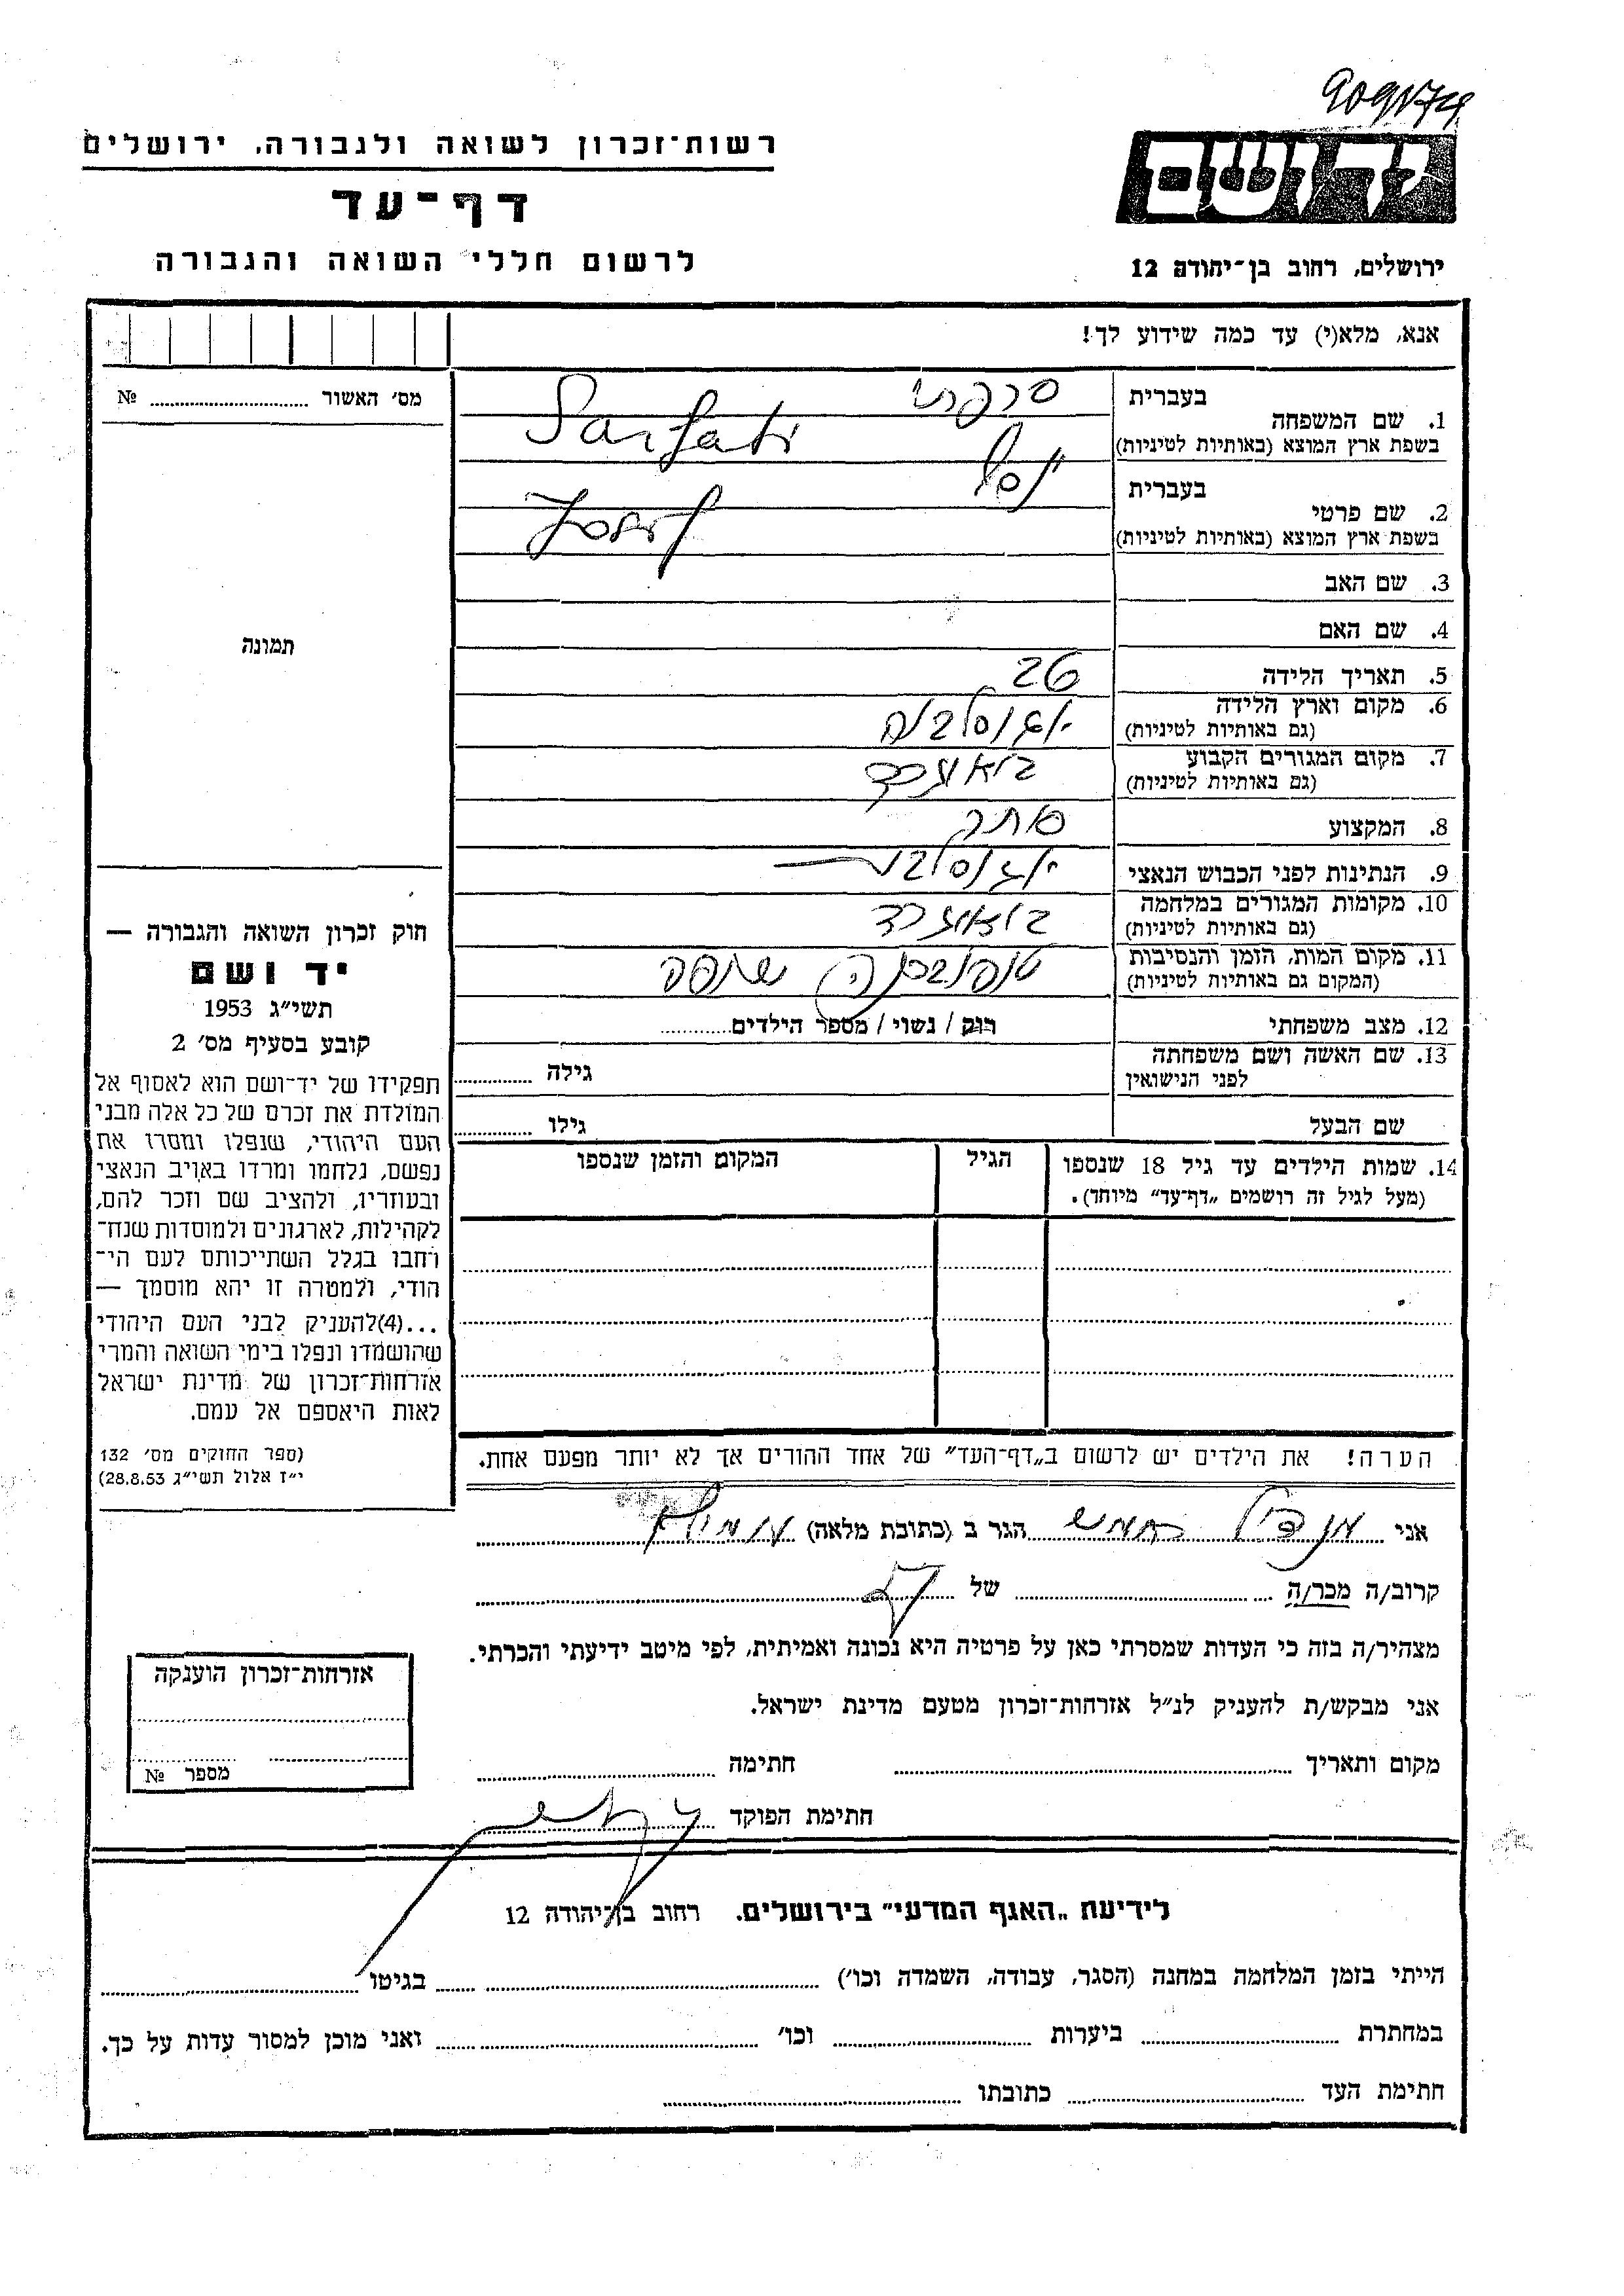 רשות־זכרון לשואה ולגבורה, ירושלים
דף־עד
לרשום חללי השואה והגבורה
ידושם
ירושלים, רחוב בן־יהודה 12
אנא, מלא(י) עד כמה שידוע לך!
מס׳ האשור № 
1. שם המשפחה בעברית סרפתי
בשפת ארץ המוצא (באותיות לטיניות) Sarfati
2. שם פרטי בעברית יוסף
בשפת ארץ המוצא (באותיות לטיניות) Josef
3. שם האב
4. שם האם
תמונה
5. תאריך הלידה 26
6. מקום וארץ הלידה יוגוסלביה
(גם באותיות לטיניות)
7. מקום המגורים הקבוע
(גם באותיות לטיניות)
8. המקצוע סוחר
9. הנתינות לפני הכבוש הנאצי
10. מקומות המגורים במלחמה
(גם באותיות לטיניות)
11. מקום המות, הזמן והנסיבות
(המקום גם באותיות לטיניות)
12. מצב משפחתי רווק / נשוי / מספר הילדים
13. שם האשה ושם משפחתה גילה
לפני הנישואין
שם הבעל גילו
14. שמות הילדים עד גיל 18 שנספו הגיל המקום והזמן שנספו
(מעל לגיל זה רושמים „דף־עד” מיוחד).
חוק זכרון השואה והגבורה —
יד ושם
תשי״ג 1953
קובע בסעיף מס׳ 2
תפקידו של יד־ושם הוא לאסוף אל
המולדת את זכרם של כל אלה מבני
העם היהודי, שנפלו ומסרו את
נפשם, נלחמו ומרדו באויב הנאצי
ובעוזריו, ולהציב שם וזכר להם,
לקהילות, לארגונים ולמוסדות שנח־
רחבו בגלל השתייכותם לעם הי־
הודי, ולמטרה זו יהא מוסמך —
...(4)להעניק לבני העם היהודי
שהושמדו ונפלו בימי השואה והמרי
אזרחות־זכרון של מדינת ישראל
לאות היאספם אל עמם.
(ספר החוקים מס׳ 132
י״ז אלול תשי״ג 28.8.53)
הערה! את הילדים יש לרשום ב„דף־העד” של אחד ההורים אך לא יותר מפעם אחת.
אני הגר ב (כתובת מלאה)
קרוב/ה מכר/ה של
מצהיר/ה בזה כי העדות שמסרתי כאן על פרטיה היא נכונה ואמיתית, לפי מיטב ידיעתי והכרתי.
אני מבקש/ת להעניק לנ״ל אזרחות־זכרון מטעם מדינת ישראל.
אזרחות־זכרון הוענקה
מספר №
מקום ותאריך חתימה
חתימת הפוקד
לידיעת „האגף המדעי” בירושלים. רחוב בן־יהודה 12
הייתי בזמן המלחמה במחנה (הסגר, עבודה, השמדה וכו׳) בגיטו
במחתרת ביערות וכו׳ ואני מוכן למסור עדות על כך.
חתימת העד כתובתו